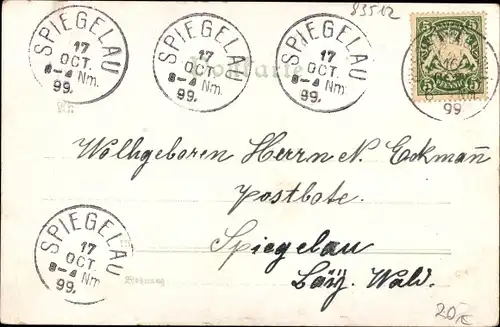 83512
SPIEGELAU
17
OCT.
8-4 Nm.
99.
SPIEGELAU
17
OCT.
8-4 Nm.
99.
SPIEGELAU
17
OCT.
8-4 Nm.
99.
5 PFENNIG 5
99
Postkarte
An
Wolhgeboren Herrn N. Eckmann
Postbote.
Spiegelau
Bäy. Wald.
SPIEGELAU
17
OCT.
8-4 Nm.
99.
Wohnung
20,-